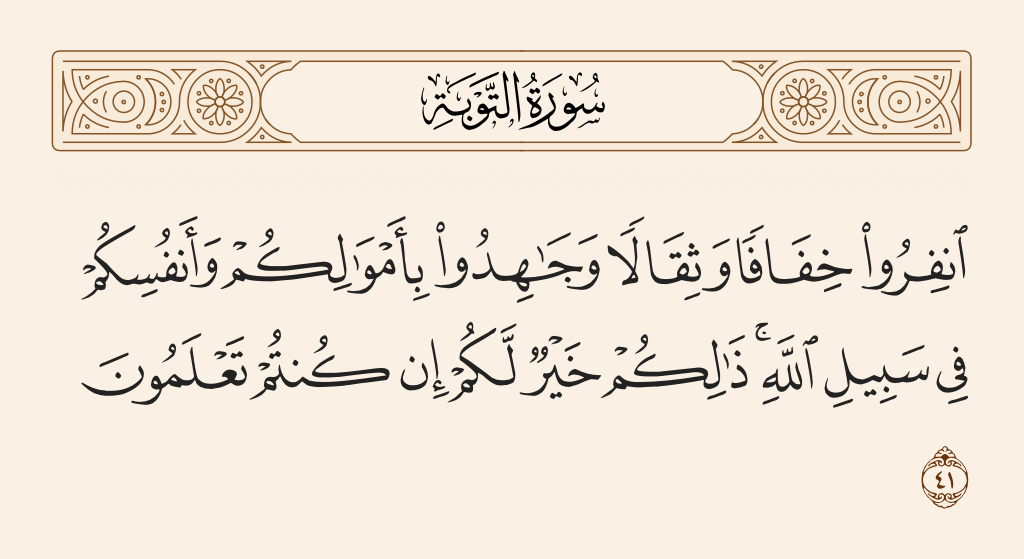 سُورَةُ التَّوْبَةِ
ٱنفِرُوا۟ خِفَافًا وَثِقَالًا وَجَـٰهِدُوا۟ بِأَمْوَٰلِكُمْ وَأَنفُسِكُمْ
فِى سَبِيلِ ٱللَّهِ ۚ ذَٰلِكُمْ خَيْرٌ لَّكُمْ إِن كُنتُمْ تَعْلَمُونَ
٤١